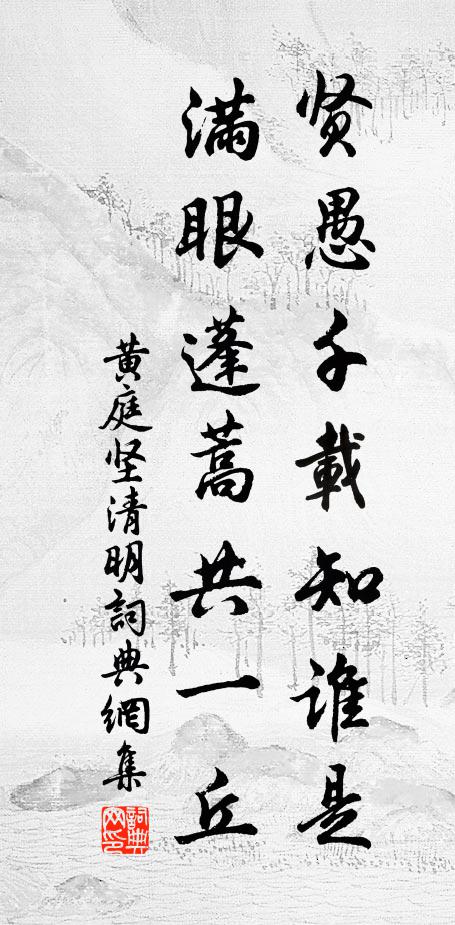 贤愚千載知谁是
满眼蓬蒿共一丘
黄庭坚清明詞典網集
詞典网印